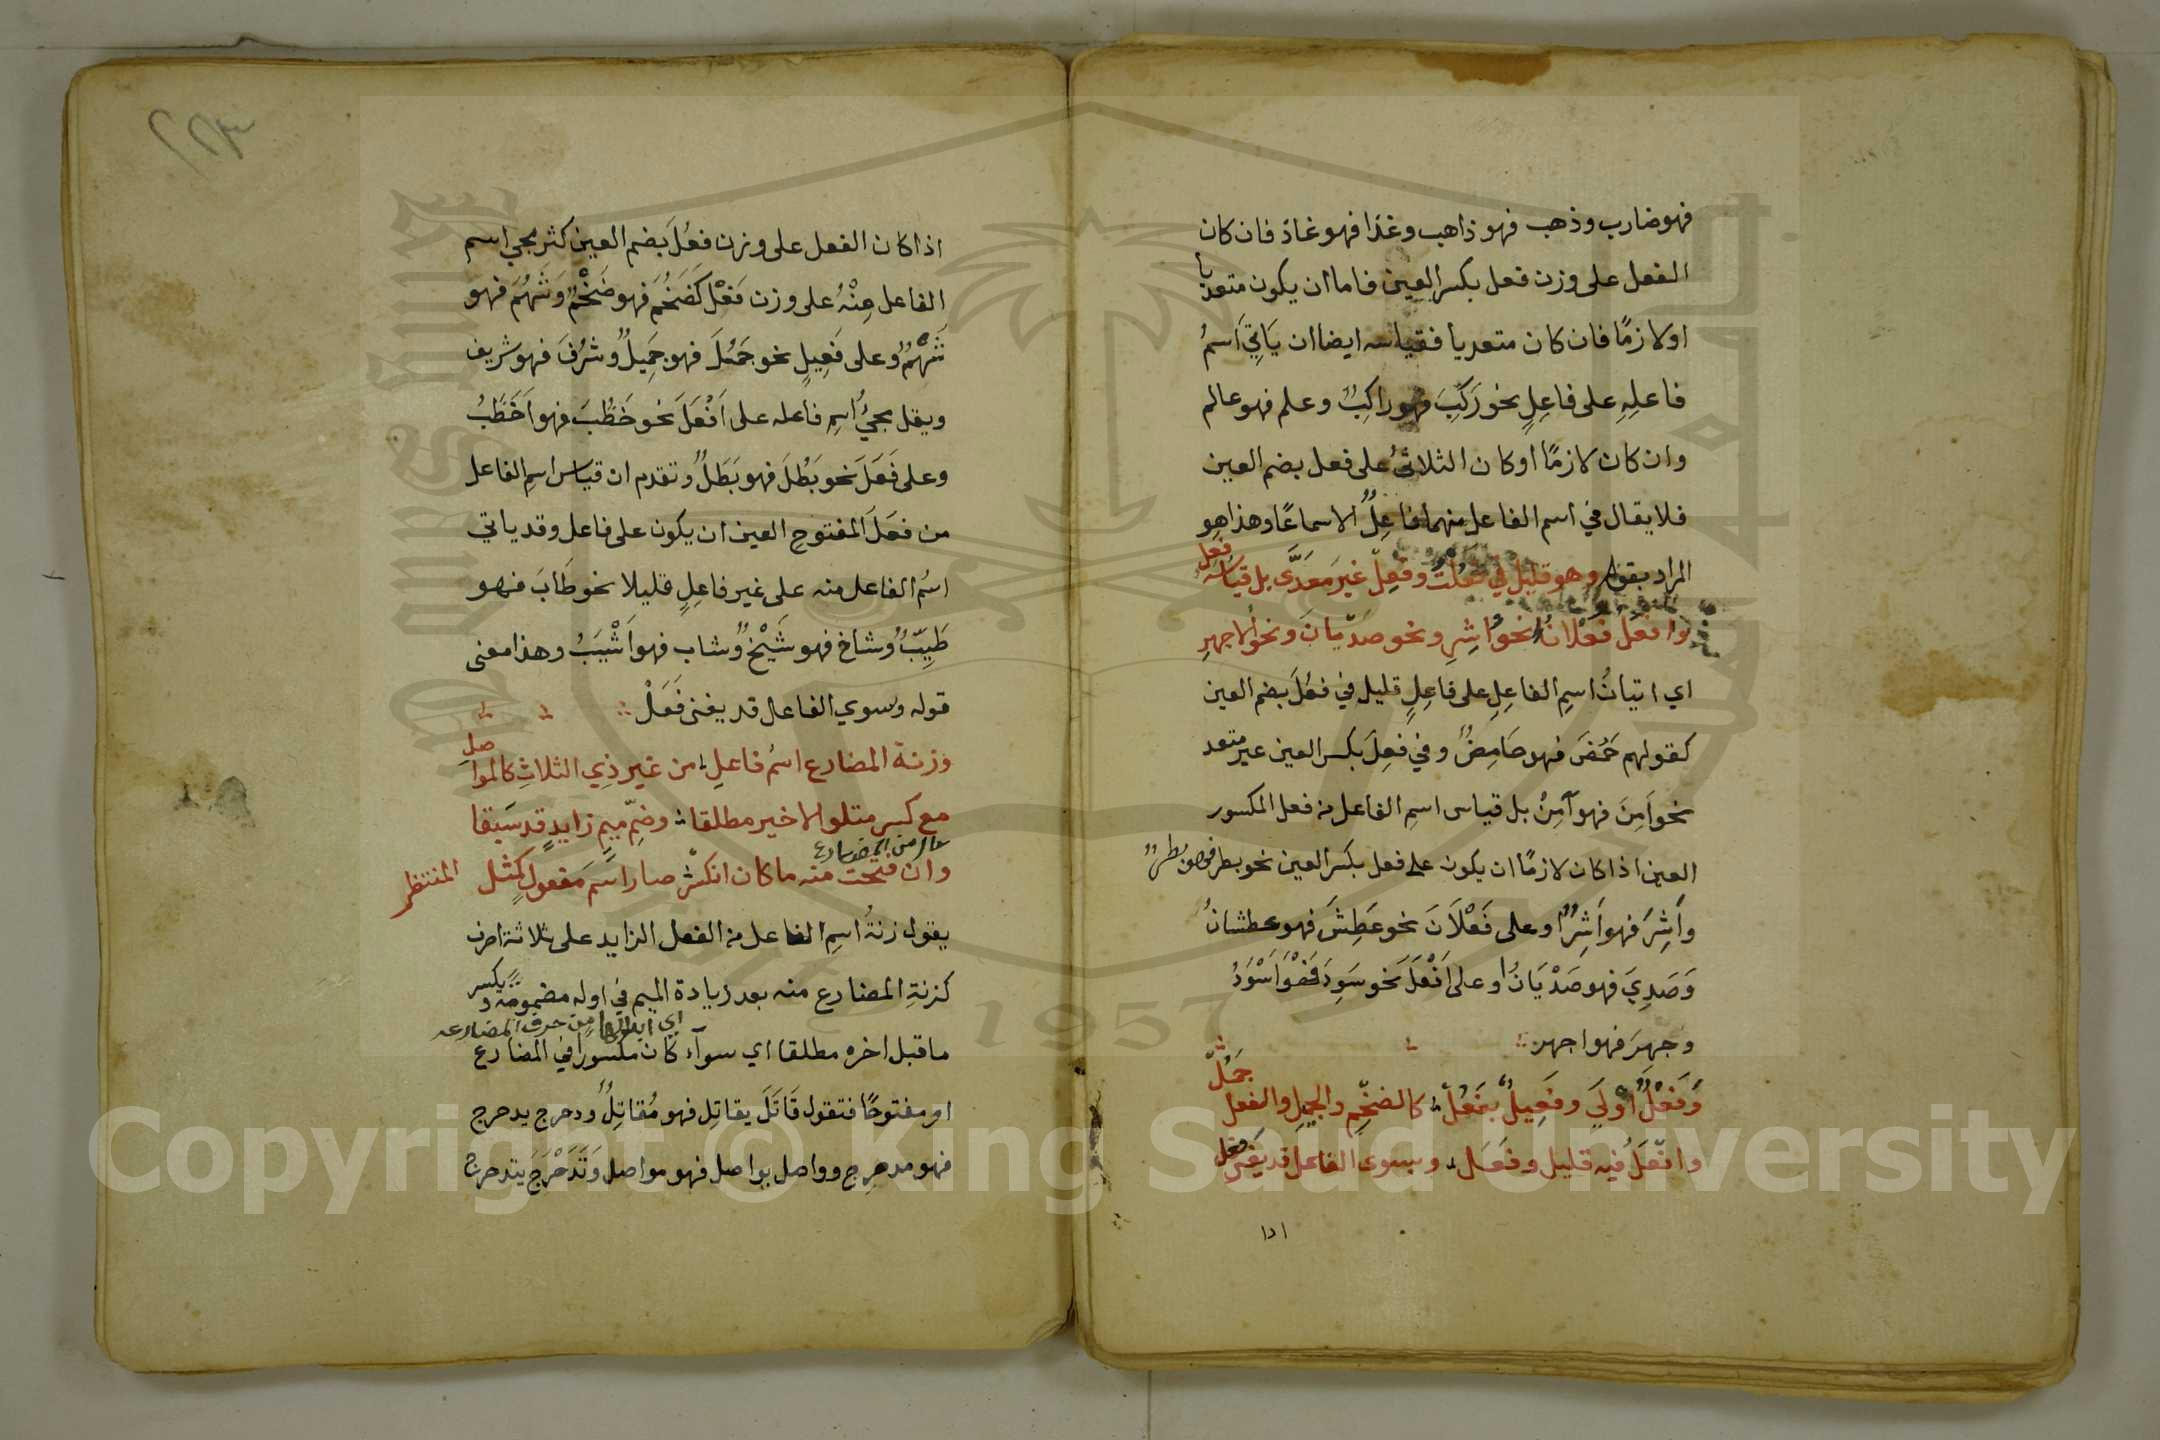 فهو ضارب وذهب فهو ذاهب وغذا فهو غاذ فان كان
الفعل على وزن فعل بكسر العين فاما ان يكون متعديا
او لازمًا فان كان متعديا فقياسه ايضا ان يَاتِيَ اَسمُ
فاعلِهِ على فاعِلٍ نحو رَكِبَ فهو راكِبٌ وعلم فهو عالم
وان كان لازمًا او كان الثلاثيُ على فعل بضم العين
فلا يقال في اسم الفاعل منهما فاعِلٌ الا سماعًا وهذا هو
المراد بقوله وهو قليل في فَعُلْتُ وفَعِلْ غيرَ مَعَدَّى بل قياسه فَعِلْ
وافعَلٌ فَعْلَانُ نحوُ اشِرِ ونحو صَدْيانَ ونحوُ الاجهرِ
اي اتيانُ اسمِ الفاعِلِ على فاعِلٍ قليل في فعُلَ بضم العين
كقولهم حَمُضَ فهو حَامِضٌ وفي فعِلَ بكسر العين غير متعد
نحو اَمِنَ فهو آمِنٌ بل قياس اسمِ الفاعل من فعل المكسور
العين اذا كان لازمًا ان يكون على فعل بكسر العين نحو بطر فهو بطرٌ
واَشِرَ فهو اَشِرٌ او على فَعْلَانَ نحو عَطِشَ فهو عطشانُ
وَصَدِيَ فهو صَدْيَانُ او على اَفْعَلَ نحو سَوِدَ فهْوَ اَسْوَدُ
وجَهِرَ فهو اجهر
وَفَعْلٌ اوْلَي وفَعِيلٌ بفَعُلْ كالضخْمِ والجميلِ والفعل جَمُلْ
وافْعَلٌ فيه قليل وفَعَل وبسوى الفاعل قد يَغْنَى فعل
اذا
٢٢٣
اذا كان الفعل على وزن فعُلَ بضم العين كثر مجي اسم
الفاعل مِنْهُ على وزن فَعْل كَضَخُمَ فهو ضَخْمٌ وَشَهُمَ فهو
شَهْمٌ وعلى فَعِيلٍ نحو جَمُلَ فهو جَمِيلٌ وشرُفَ فهو شريف
ويقل مجيُ اسمِ فاعله على اَفْعَلَ نحو خَظُبَ فهو اَخْظَبُ
وعلى فَعَلَ نحو بَطُلَ فهو بَطَلٌ وتقدم ان قياس اسمِ الفاعل
من فعَلَ المفتوحِ العين ان يكون على فاعل وقد ياتي
اسمُ الفاعل منه على غير فاعِلٍ قليلا نحو طَابَ فهو
طَيِّبٌ وشاخ فهو شَيْخٌ وشاب فهو اَشْيَبُ وهذا معنى
قوله وبسوي الفاعل قد يغنى فَعَلْ
وزنة المضارع اسمُ فاعلِ من غير ذِي الثلاثِ كالمواصلِ
مع كسر متلو الاخير مطلقا وضمّ ميمٍ زايدٍ قد سَبَقا
وان فتحت منه ما كان انكسر صار اسْمَ مَفعولٍ كمثل المنتظر
يقول زنةُ اسمِ الفاعل من الفعل الزايد على ثلاثة احرف
كزنةِ المضارع منه بعد زيادة الميم في اوله مضمومَةً ويكسر
اي ابدالها من حرف المضارعه
ما قبل اخره مطلقا اي سوآء كان مكسورًا في المضارع
او مفتوحًا فتقول قَاتَلَ يقاتِل فهو مُقاتِلٌ ودحرج يدحرج
فهو مدحرِج وواصل يواصل فهو مواصل وَتَدَحْرَجَ يتدحرج
Copyright © King Saud University
1957